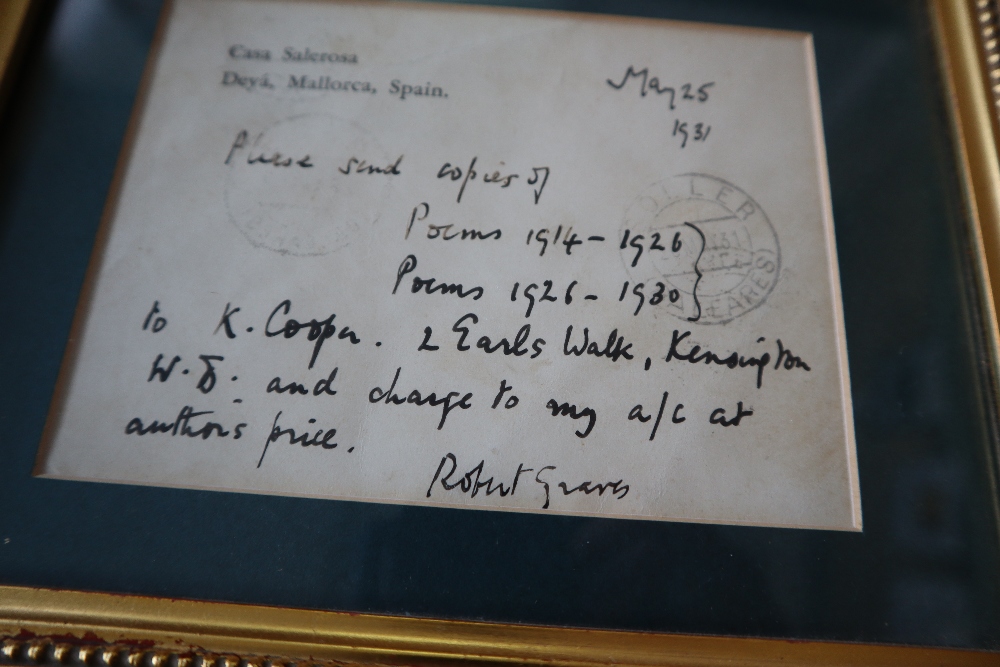 Casa Salerosa
Deyá, Mallorca, Spain.
May 25
1931
Please send copies of
Poems 1914 - 1926
Poems 1926 - 1930
to K. Cooper. 2 Earls Walk, Kensington
W.8. and charge to my a/c at
author's price.
Robert Graves
OLLER
LEARES